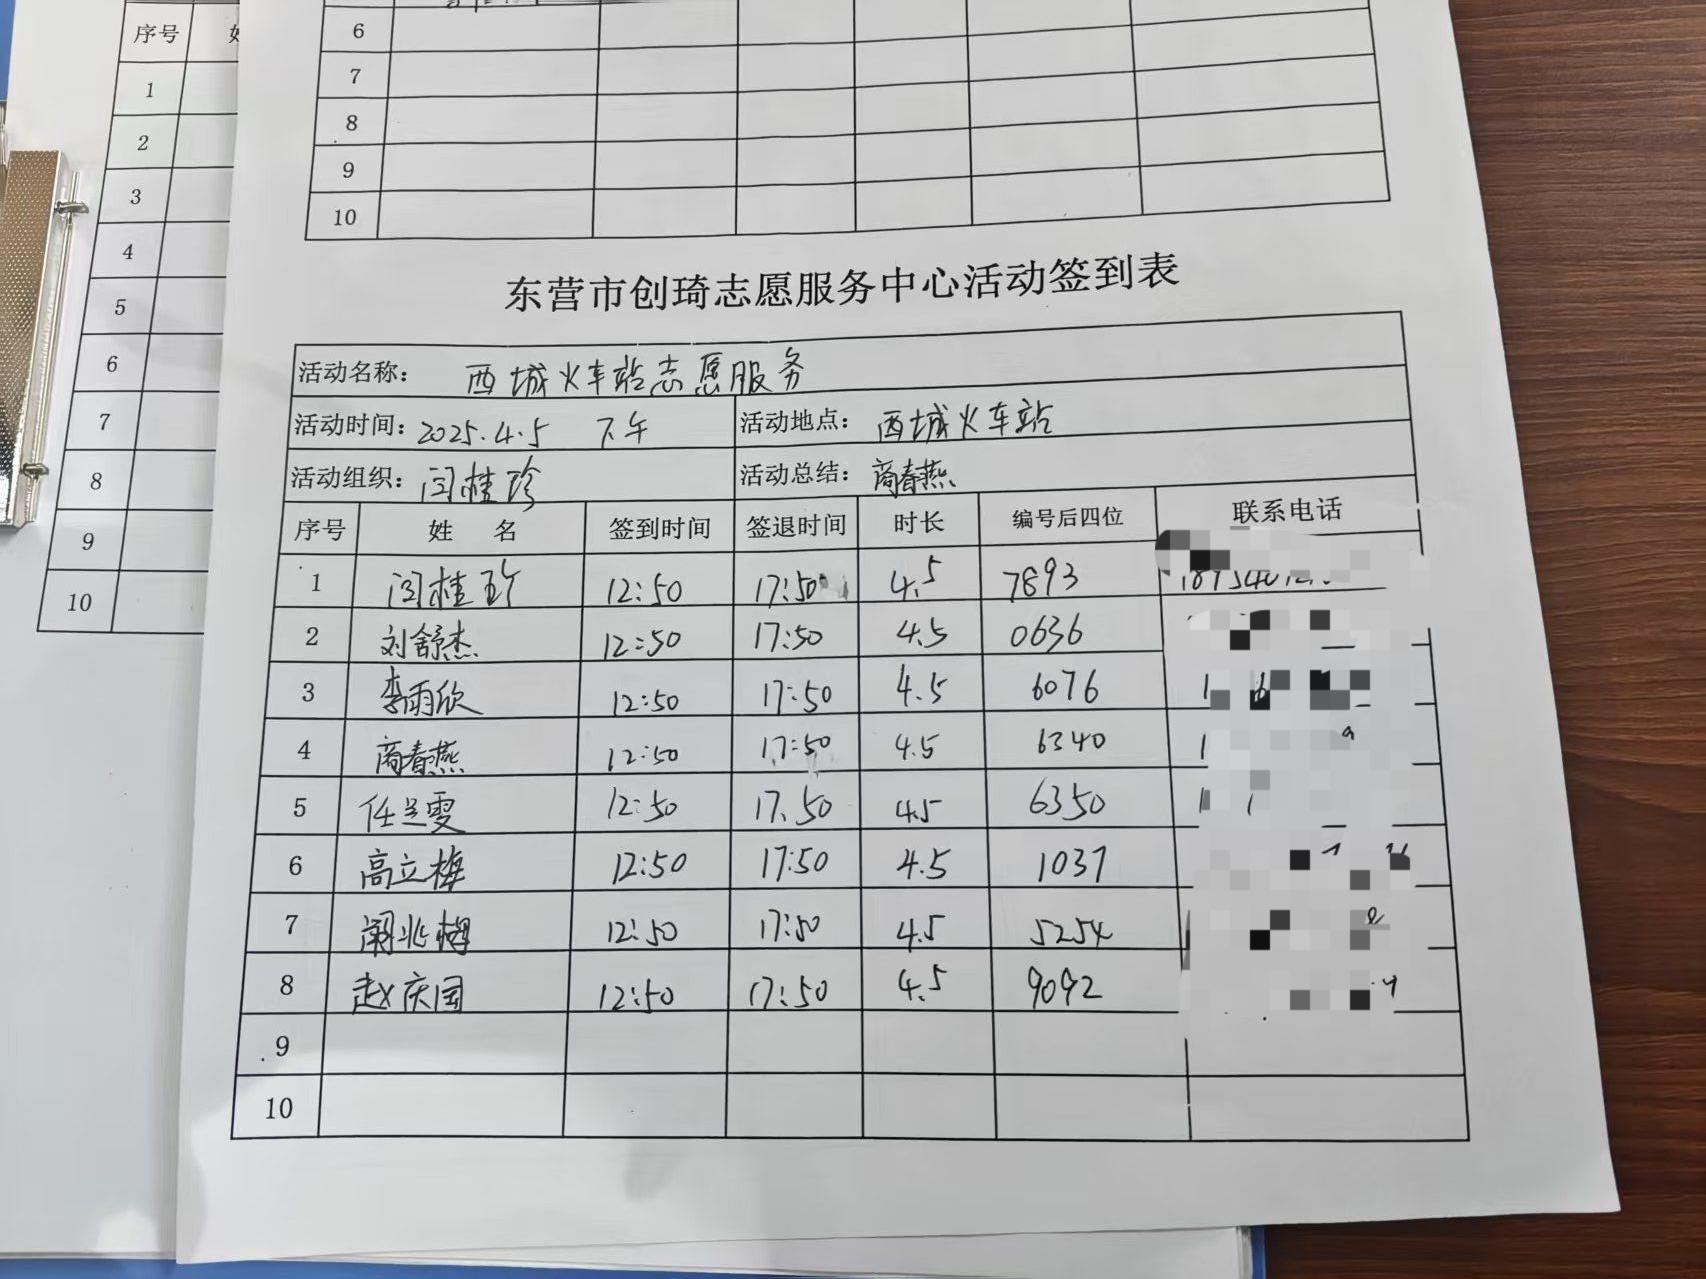 序号
1
2
3
4
5
6
7
8
9
10
6
7
8
9
10
东营市创琦志愿服务中心活动签到表
活动名称: 西城火车站志愿服务
活动时间: 2025.4.5 下午 活动地点: 西城火车站
活动组织: 闫桂珍 活动总结: 商春燕
序号 姓 名 签到时间 签退时间 时长 编号后四位 联系电话
1 闫桂珍 12:50 17:50 4.5 7893
2 刘舒杰 12:50 17:50 4.5 0636
3 李雨欣 12:50 17:50 4.5 6076
4 商春燕 12:50 17:50 4.5 6340
5 任兰雯 12:50 17.50 4.5 6350
6 高立梅 12:50 17:50 4.5 1037
7 12:50 17:50 4.5 5254
8 赵庆国 12:50 17:50 4.5 9092
9
10